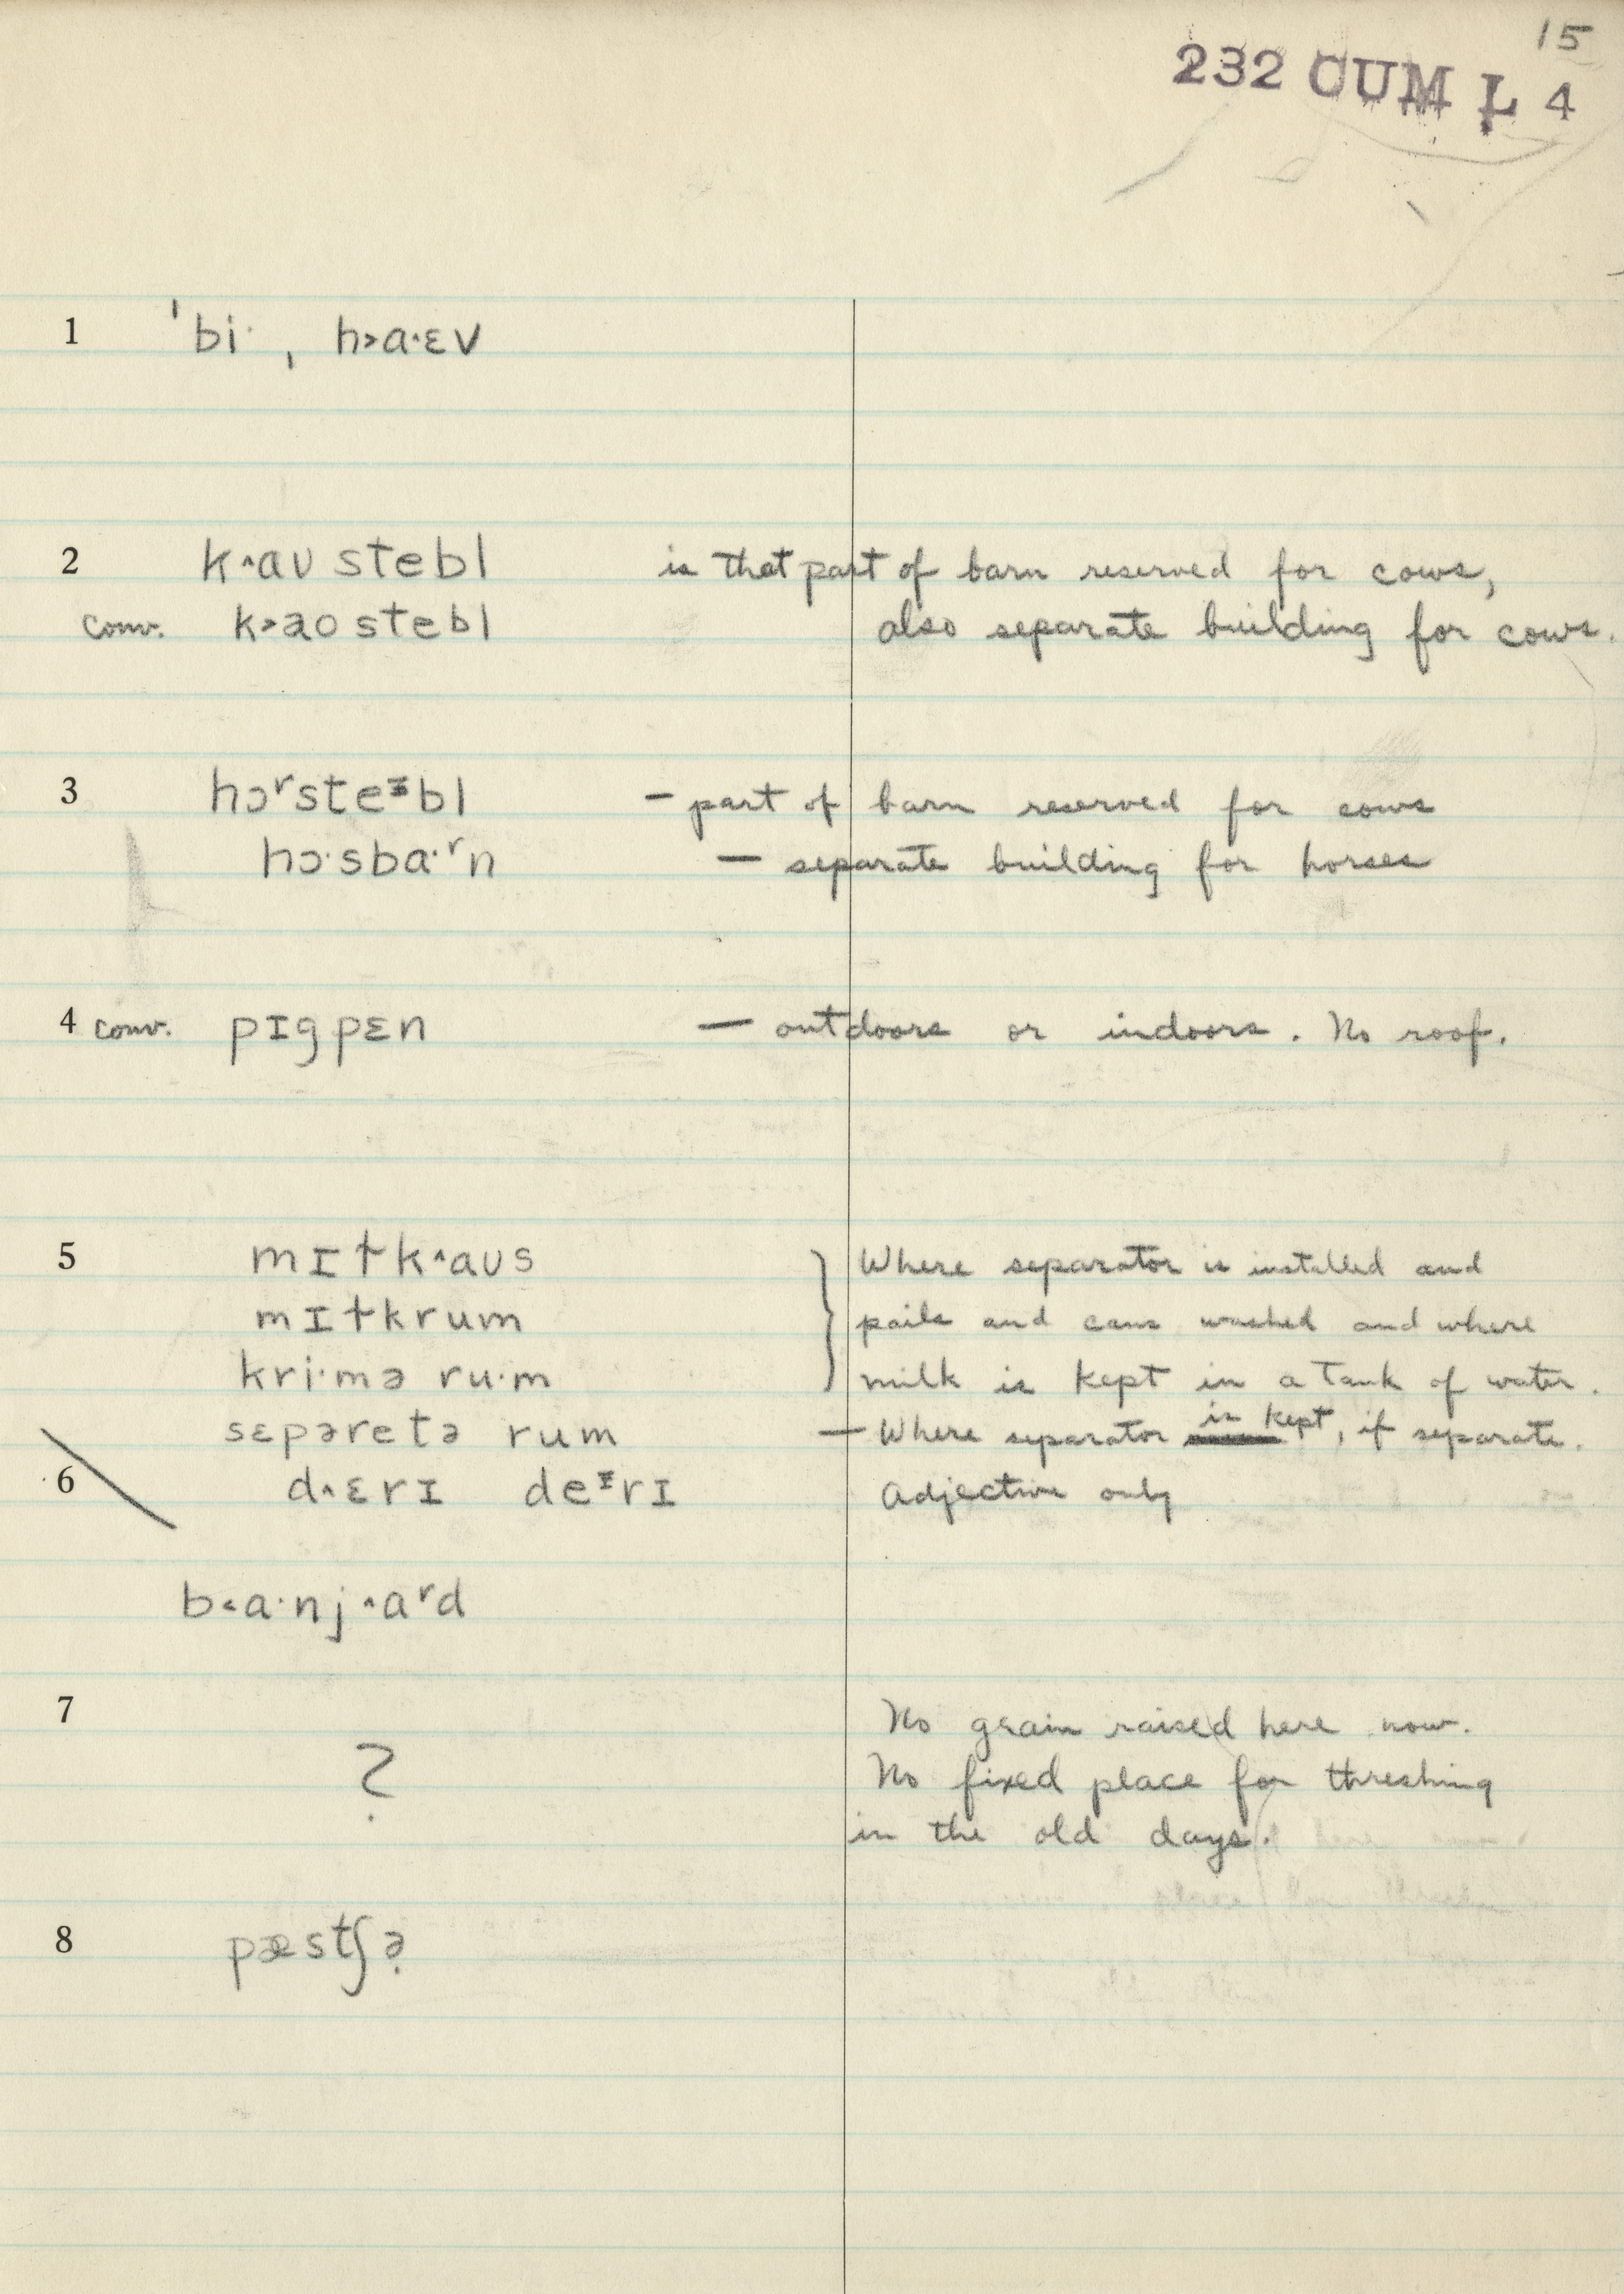 15
232 CUM L 4
1 ˈbi· , h˃a·ɛv
2 k˄aʊ stebl is that part of barn reserved for cows,
conv. k˃ao stebl also separate building for cows.
3 hɔʳsteᶦbl – part of barn reserved for cows
hɔ·sba·ʳn — separate building for horses
4 conv. pɪgpɛn — outdoors or indoors. No roof.
5 mɪɫk˄aʊs } Where separator is installed and
mɪɫkrum pails and cans washed and where
kri·mə ru·m milk is kept in a tank of water.
sɛpəretə rum — Where separator is kept, if separate.
6 d˄ɛrɪ deᶦrɪ Adjective only
b˂a·nj˄aʳd
7 No grain raised here now.
? No fixed place for threshing
in the old days.
8 pæstʃə̣